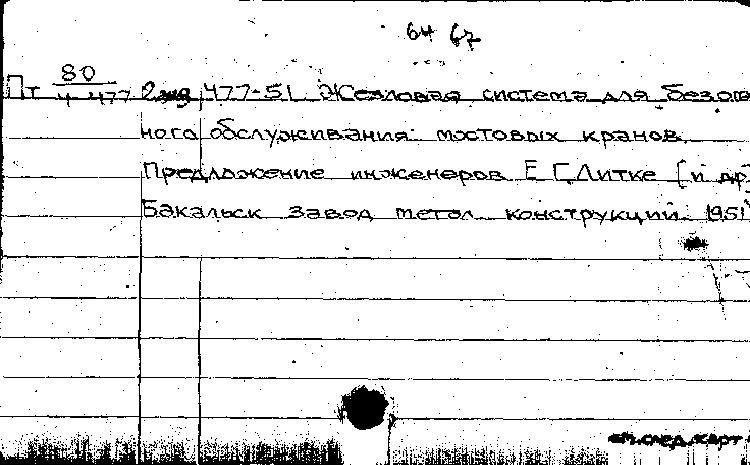 64 67
Пт 80
4 477 2 экз 477-51 Жезловая система для безопас
ного обслуживания мостовых кранов
Предложение инженеров Е Г. Литке [и др
Бакальск завод метал конструкций 1951
см. след. карт